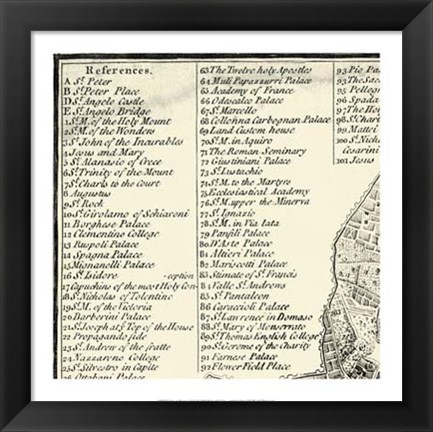 References.
A St. Peter
B St. Peter Place
D St. Angelo Castle
E St. Angelo Bridge
1 St. M. of the Holy Mount
2 St. M. of the Wonders
3 St. John of the Incurables
4 Jesus and Mary
5 St. Atanasio of Grece
6 St. Trinity of the Mount
7 St. Charls to the Court
8 Augustus
9 St. Rock
10 St. Girolamo of Schiaroni
11 Borghese Palace
12 Clementino College
13 Ruspoli Palace
14 Spagna Palace
15 Mignanelli Palace
16 St. Isidore -ception
17 Capuchins of the most Holy Con-
18 St. Nicholas of Tolentino
19 St. M. of the Victoria
20 Barberini Palace
21 St. Joseph at ye Top of the House
22 Propaganda fide
23 St. Andrew of the fratte
24 Nazzareno College
25 St. Silvestro in Capite
26 Ottoboni Palace
63 The Twelve holy Apostles
64 Muti Papazzurri Palace
65 Academy of France
66 Odescalco Palace
67 St. Marcello
68 Collonna Carbognan Palace
69 Land Custom house
70 St. M. in Aquiro
71 The Roman Seminary
72 Giustiniani Palace
73 St. Eustachio
74 St. M. to the Martyrs
75 Ecclesiastical Academy
76 St. M. upper the Minerva
77 St. Ignazio
78 St. M. in Via lata
79 Panfili Palace
80 D'Aste Palace
81 Altieri Palace
82 Mariscotti Palace
83 Stimate of St. Francis
84 Valle St. Androms
85 St. Pantaleon
86 Caraccioli Palace
87 St. Lawrence in Domaso
88 St. Mary of Monserrato
89 St. Thomas English College
90 St. Gerome of the Charity
91 Farnese Palace
92 Flower Field Place
93 Pio Pa
94 The Sac
95 Pellegr
96 Spada
97 The Ho
98 St. Chari
99 Mattei
100 St. Nich
Cesarini
101 Jesus